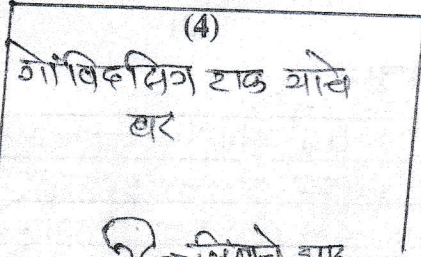 (4)
गोंविदसिग टाक याचे
घर